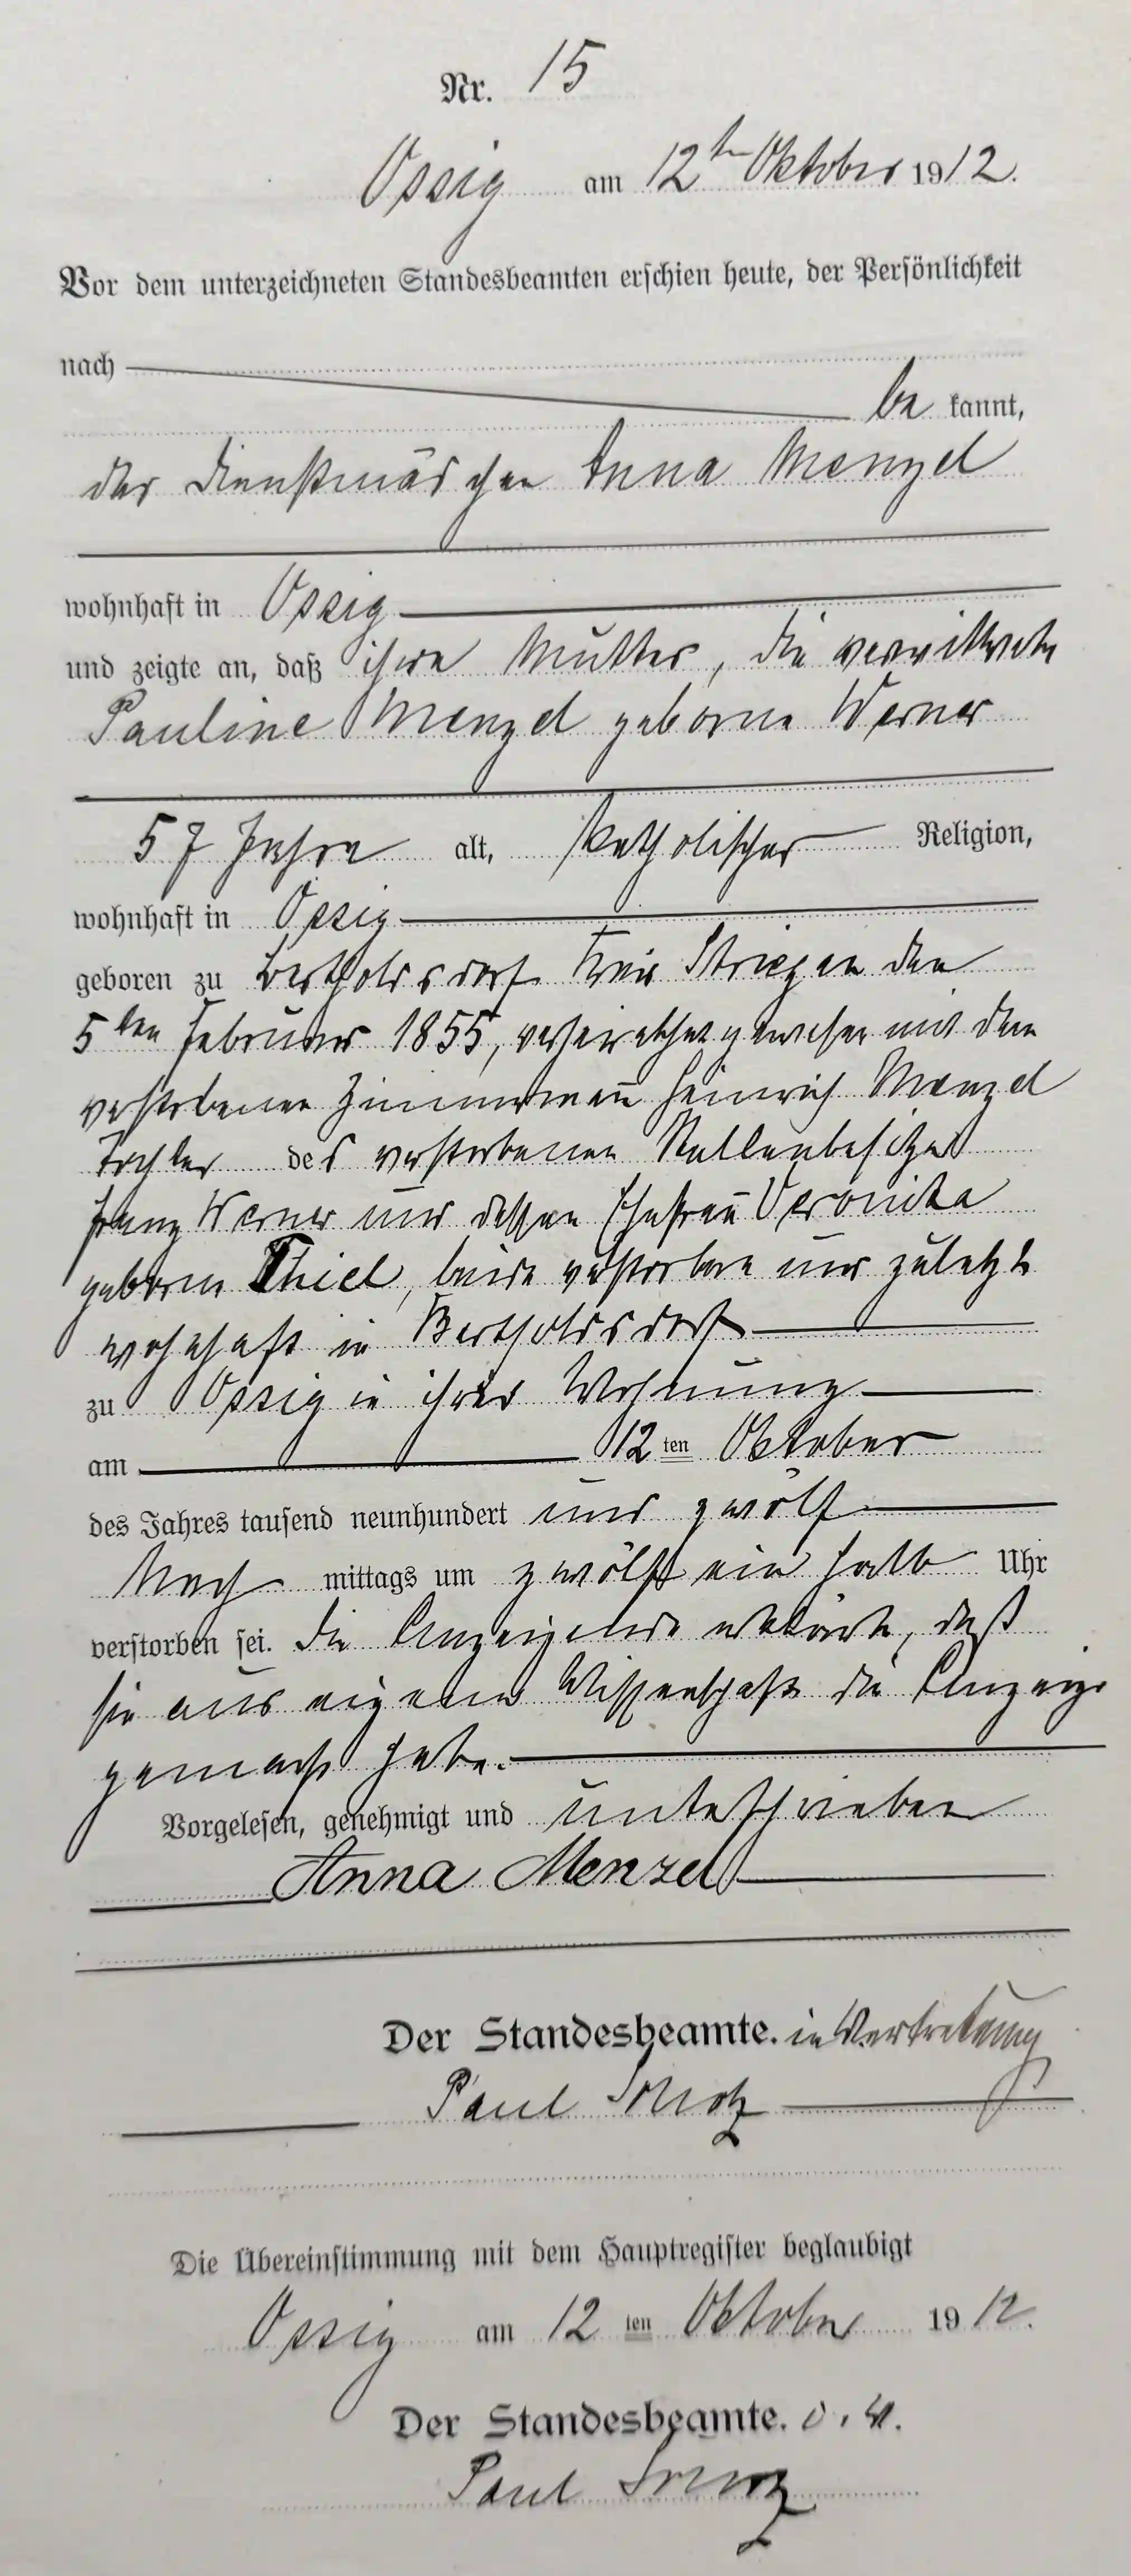 Nr. 15
Ossig am 12ten Oktober 1912.
Vor dem unterzeichneten Standesbeamten erschien heute, der Persönlichkeit
nach
be kannt,
das Dienstmädchen Anna Menzel
wohnhaft in Ossig
und zeigte an, daß ihre Mutter, die verwittwete
Pauline Menzel geborne Werner
57 Jahre alt, katholischer Religion,
wohnhaft in Ossig
geboren zu Bertholdsdorf Kreis Striegau den
5ten Februar 1855, verheirathet gewesen mit dem
verstorbenen Zimmermann Heinrich Menzel
Tochter des verstorbenen Stellenbesitzer
Franz Werner und dessen Ehefrau Veronika
geborne Thiel, beide verstorben und zuletzt
wohnhaft in Bertholdsdorf
zu Ossig in ihrer Wohnung
am 12ten Oktober
des Jahres tausend neunhundert und zwölf
Nach mittags um zwölf ein halb Uhr
verstorben sei. Die Anzeigende erklärte, daß
sie aus eigener Wissenschaft die Anzeige
gemacht habe.
Vorgelesen, genehmigt und unterschrieben
Anna Menzel
Der Standesbeamte. in Vertretung
Paul
Die Übereinstimmung mit dem Hauptregister beglaubigt
Ossig am 12ten Oktober 1912.
Der Standesbeamte. i. V.
Paul